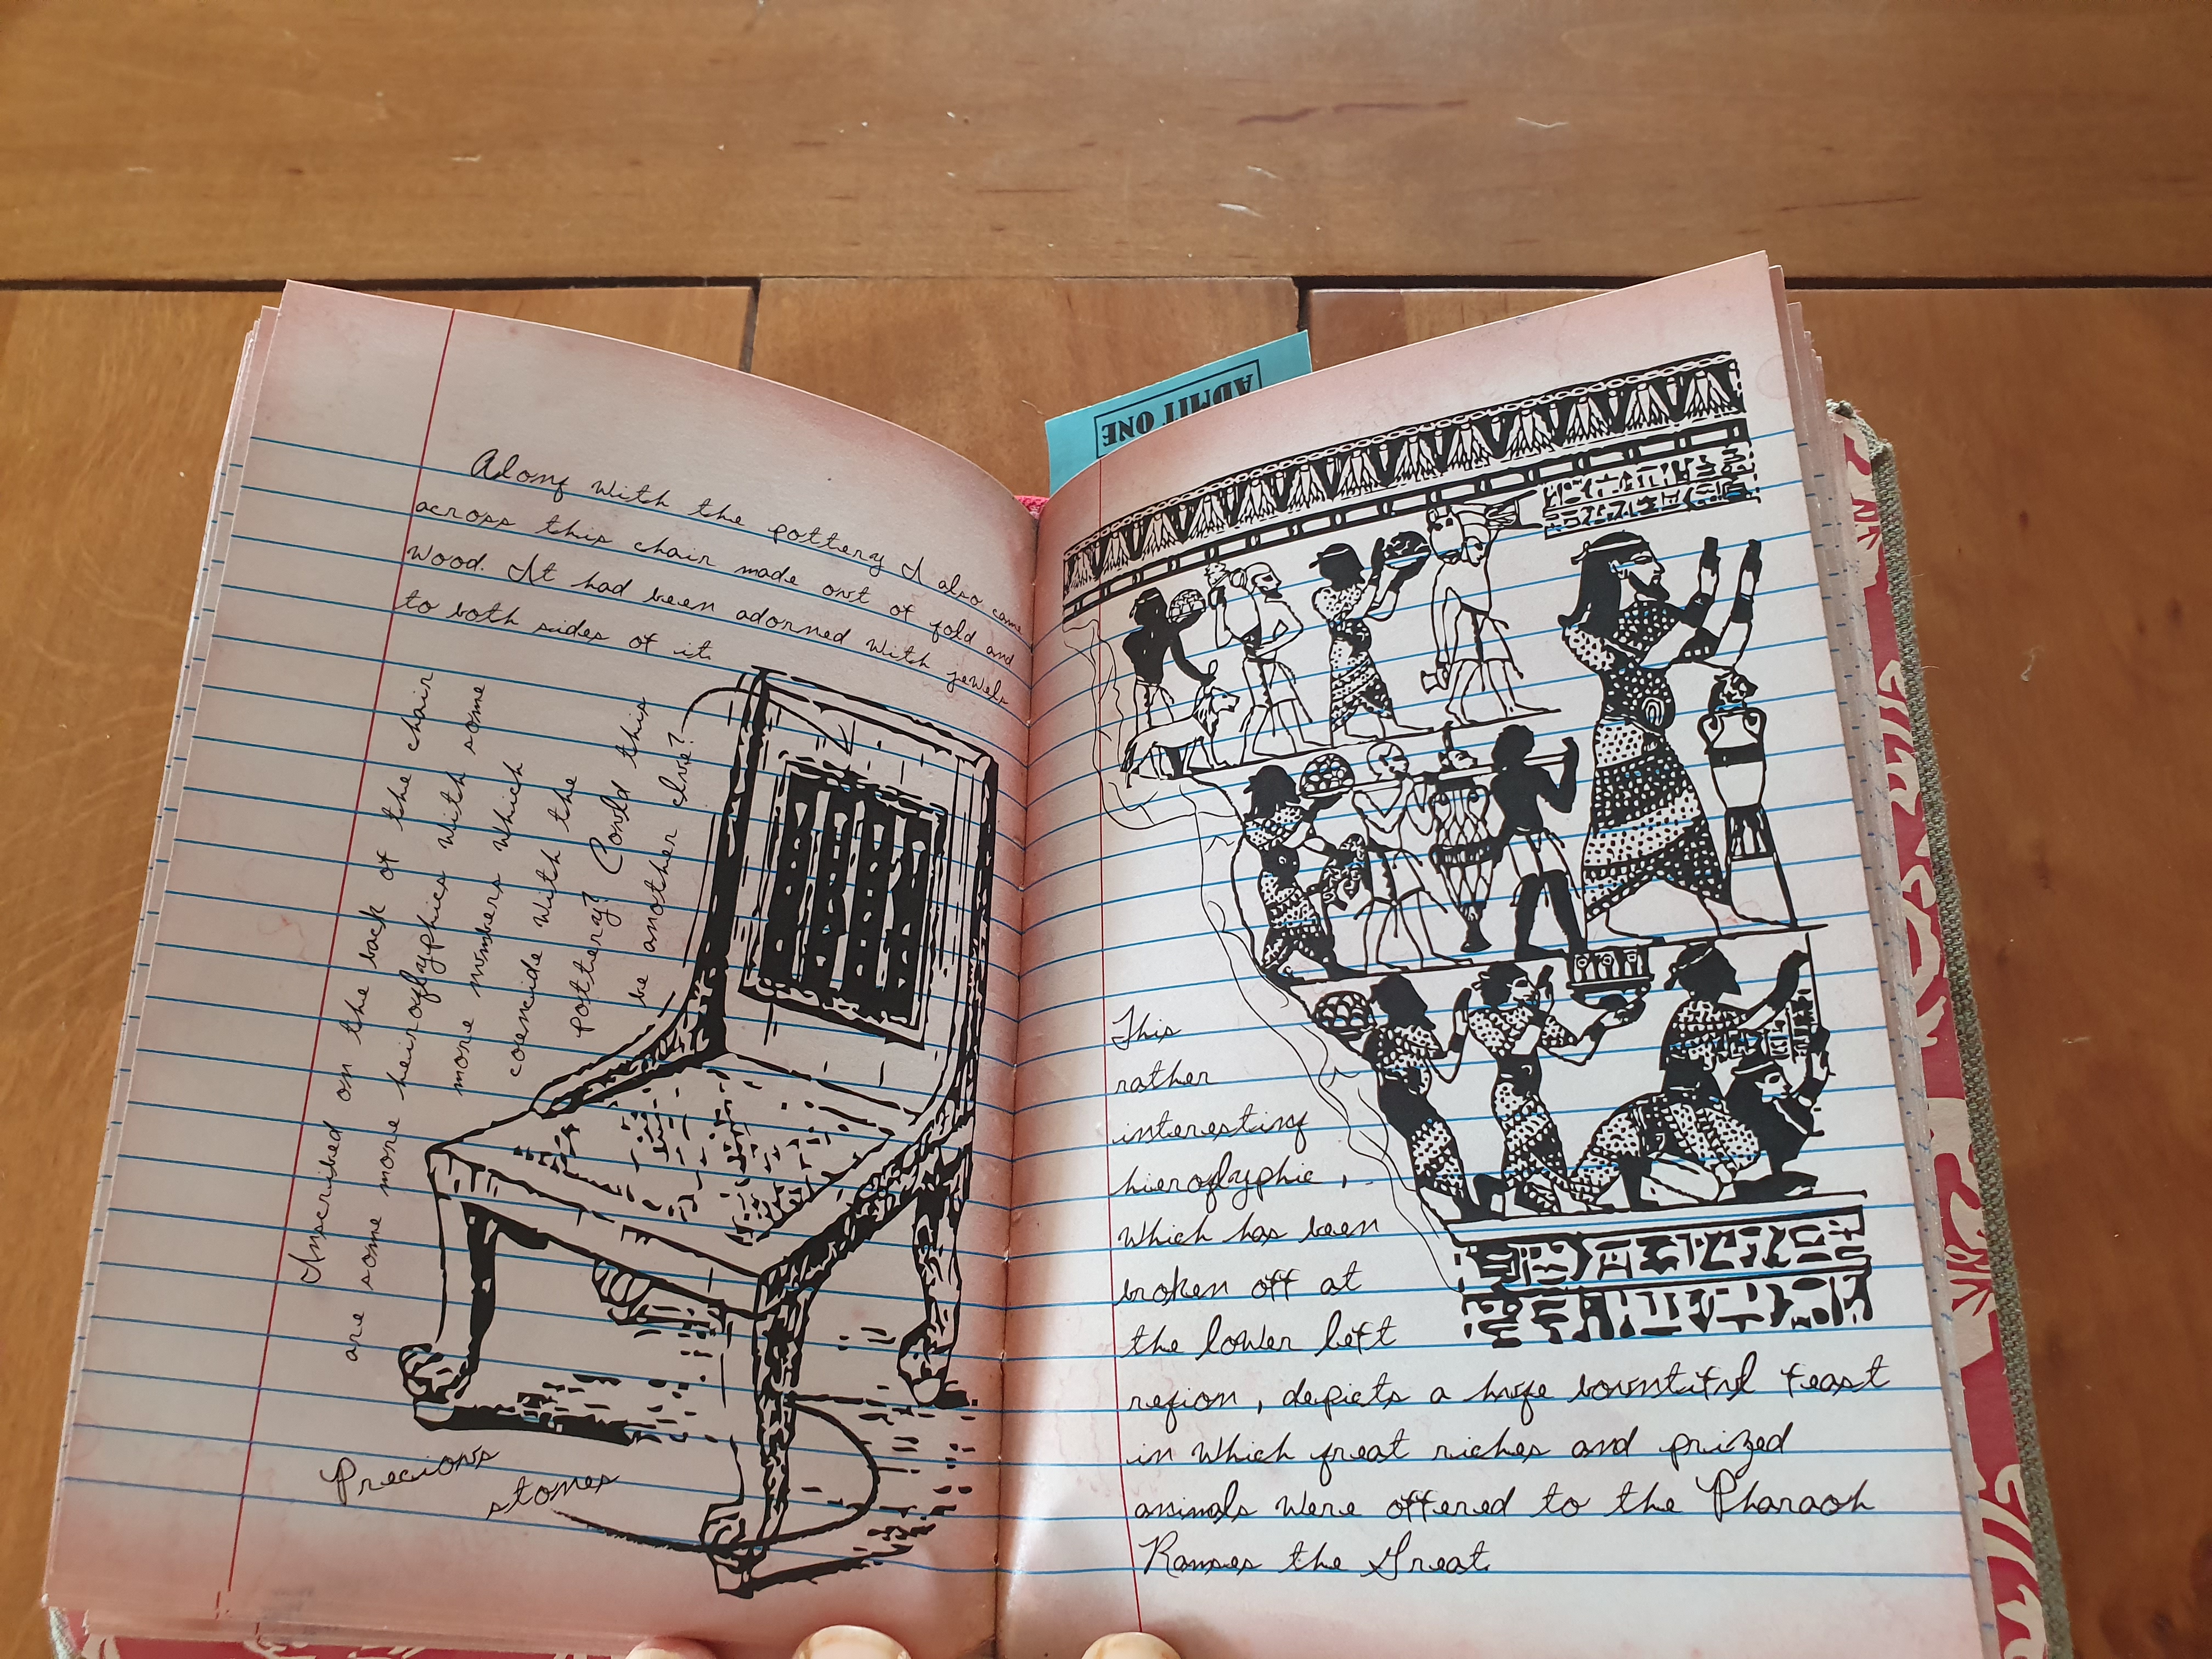 Along with the pottery I also came
across this chair made out of gold and
wood. It had been adorned with jewels
to both sides of it.
Inscribed on the back of the chair
are some more heiroglyphics with some
more numbers which
coencide with the
pottery? Could this
be another clue?
Precious
stones
ADMIT ONE
This
rather
interesting
hieroglyphic,
which has been
broken off at
the lower left
region, depicts a huge bountiful feast
in which great riches and prized
animals were offered to the Pharaoh
Ramses the Great.